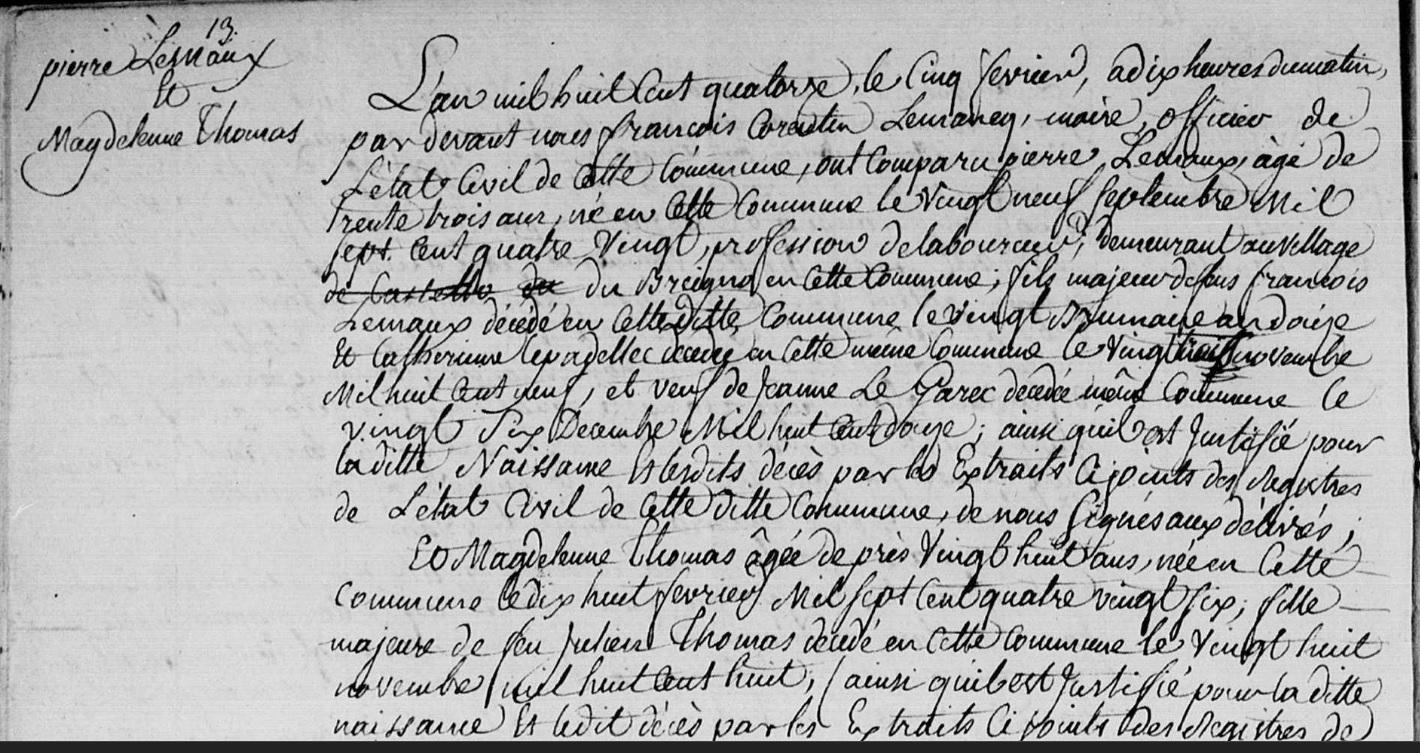 13.
pierre Lemaux
Et
Magdelenne Thomas
L'an mil huit Cent quatorze, le Cinq fevrier, a dix heures du matin,
par devant nous françois Corentin Lemancq, maire, officier de
L'état Civil de Cette Commune, ont Comparu pierre Lemaux, âgé de
trente trois ans, né en Cette Commune le vingt neuf Septembre Mil
Sept Cent quatre Vingt, profession de laboureur, demeurant au village
du en Cette Commune, fils majeur de feus françois
Lemaux décédé en Cette Ditte Commune le vingt Brumaire an douze
Et Catherinne Lepadellec décedée en Cette même Commune le Vingt novembre
Mil huit Cent neuf, et veuf de Jeanne Le Garec décedée même Commune le
vingt Six Decembre Mil huit Cent douze; ainsi qu'il est Justifié pour
la ditte Naissance Et lesdits décès par les Extraits Ci joints des Registres
de L'état Civil de Cette ditte Commune, de nous Signés aux délivrés;
Et Magdelenne Thomas âgée de près Vingt huit ans, née en Cette
Commune le dix huit fevrier Mil Sept Cent quatre vingt Six; fille
majeure de feu Julien Thomas décedé en Cette Commune le Vingt huit
novembre mil huit Cent huit, (ainsi qu'il est Justifié pour la ditte
naissance Et ledit décès par les Extraits Ci joints des Registres de